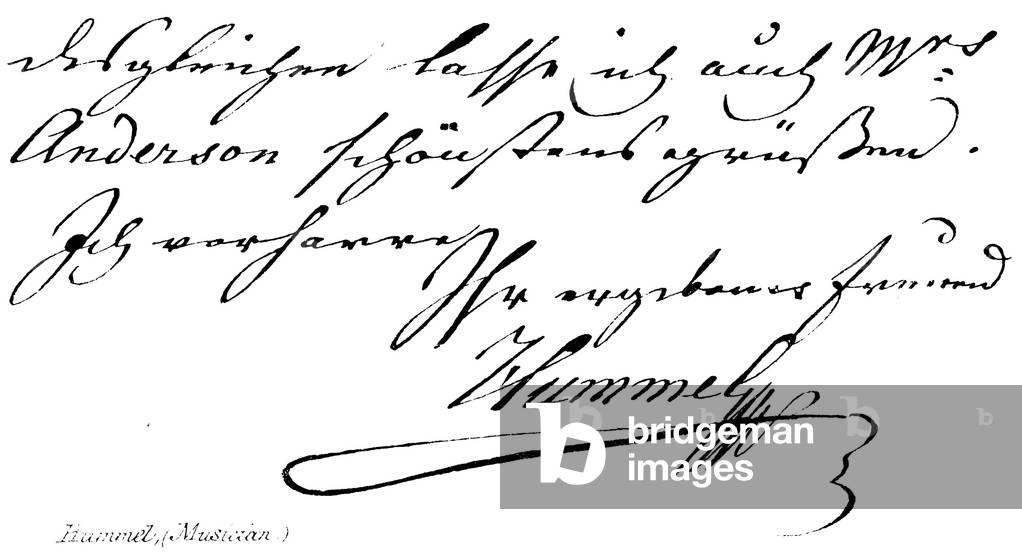 desgleichen lasse ich auch Mrs
Anderson schönstens grüßen.
Ich verharre
Ihr ergebener Freund
Hummel
bridgeman
images
Hummel, (Musician.)